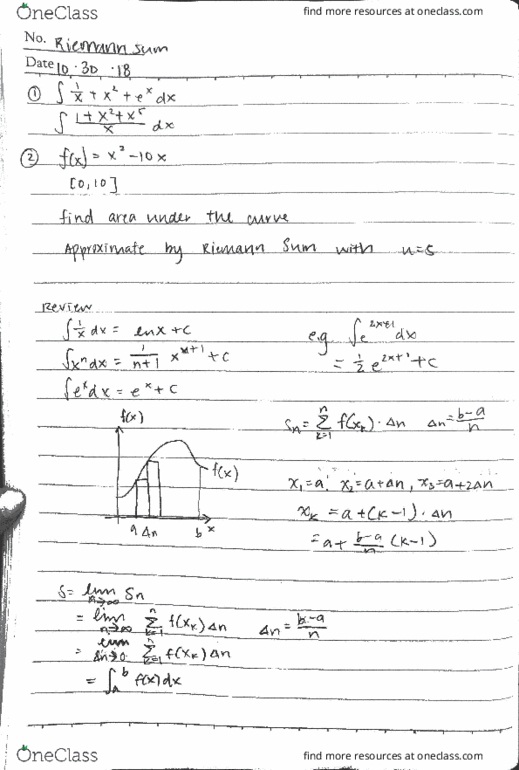 OneClass
find more resources at oneclass.com
No. Riemann sum
Date 10 · 30 · 18
① ∫ 1/x + x² + eˣ dx
∫ (1 + x² + x⁵)/x dx
② f(x) = x² - 10x
[0, 10]
find area under the curve
Approximate by Riemann Sum with n=5
Review
∫ 1/x dx = lnx + c
∫xⁿdx = 1/(n+1) xⁿ⁺¹ + c
∫eˣdx = eˣ + c
e.g ∫e²ˣ⁺¹ dx
= 1/2 e²ˣ⁺¹ + c
f(x)
f(x)
a Δn b x
Sn = Σ f(xₖ) · Δn Δn = (b-a)/n
x₁=a, x₂=a+Δn, x₃=a+2Δn
xₖ = a + (k-1) · Δn
= a + (b-a)/n (k-1)
S = lim n→∞ Sn
= lim n→∞ Σ f(xₖ) Δn Δn = (b-a)/n
= lim Δn→0 Σ f(xₖ) Δn
= ∫ₐᵇ f(x) dx
OneClass
find more resources at oneclass.com